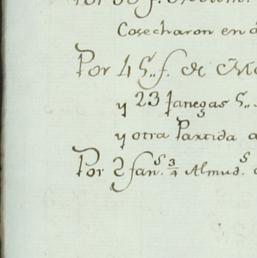 Cosecharon en
Por 4 f. de
y 23 fanegas
y otra Partida
Por 2 fan.s 3/4 Almud.s